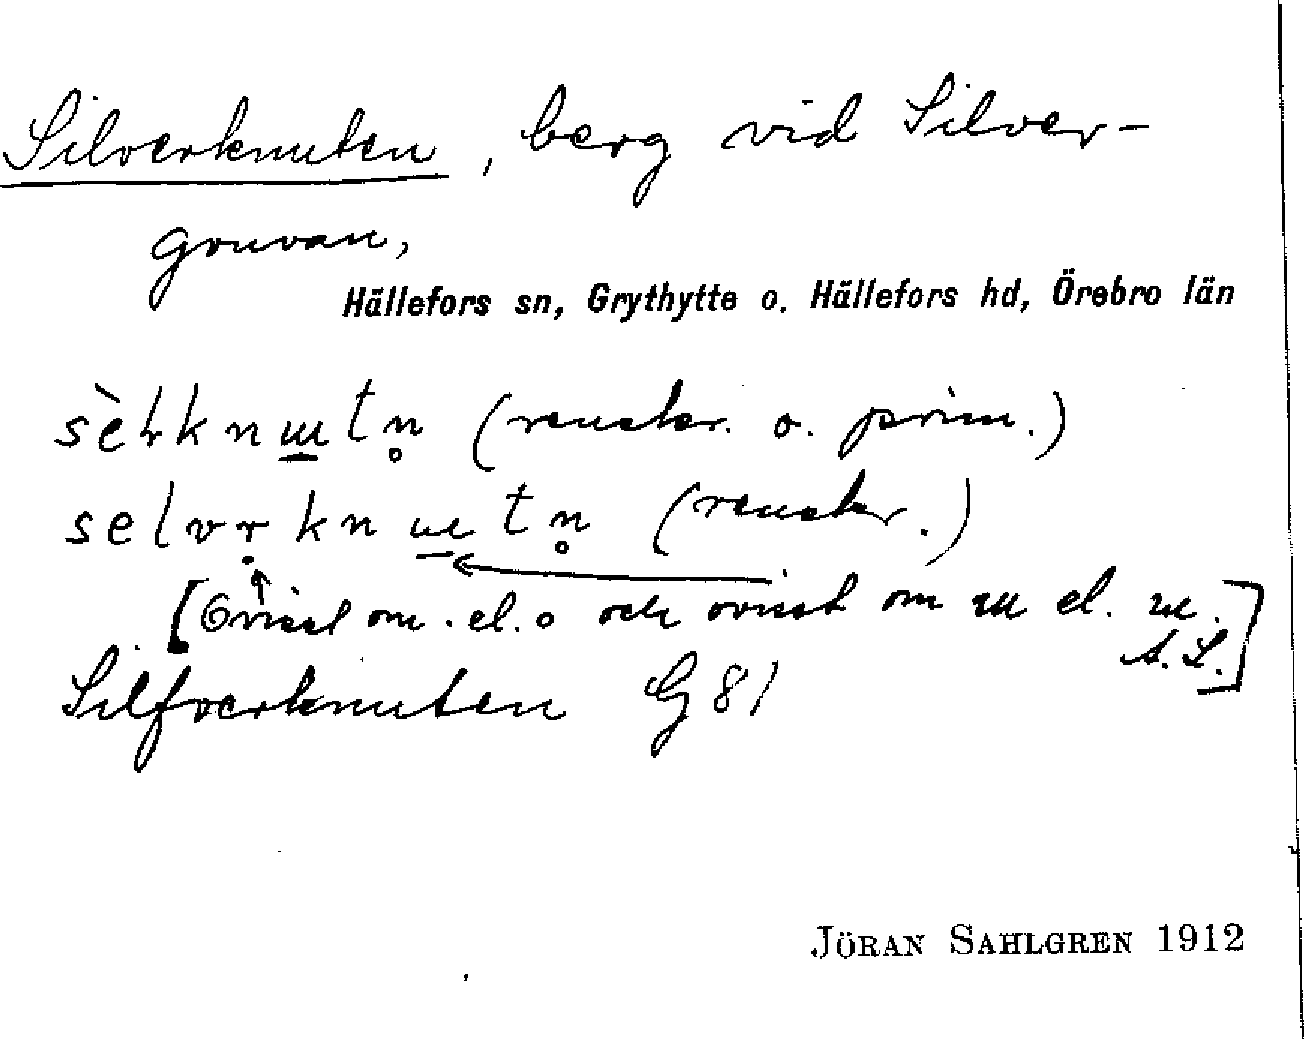 Silverknuten, berg vid Silver-
gruvan,
Hällefors sn, Grythytte o. Hällefors hd, Örebro län
(renskr. o. prim.)
(renskr.)
[Ovisst om . el. o och ovisst om ɯ el. ɯ.
A.L.]
Silfverknuten G 81
JÖRAN SAHLGREN 1912